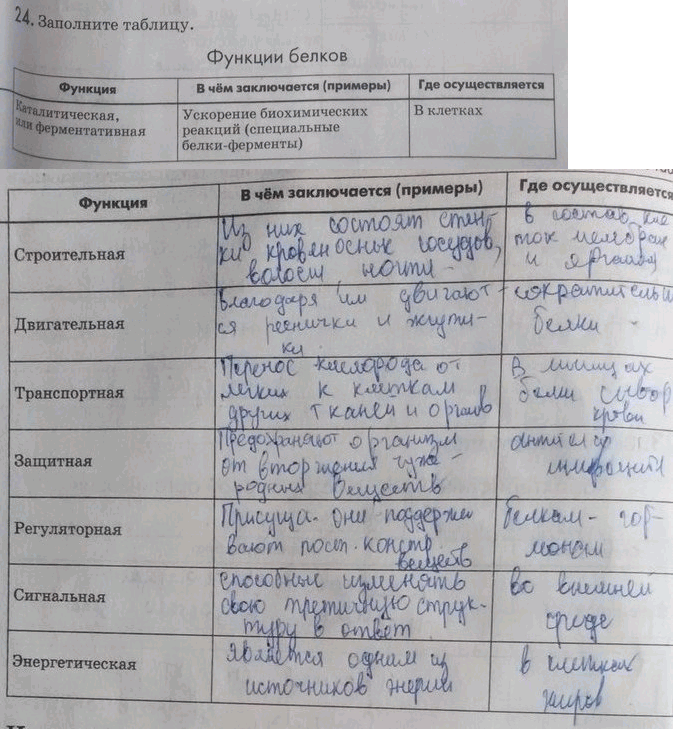 24. Заполните таблицу.
Функции белков
Функция
В чём заключается (примеры)
Где осуществляется
Каталитическая,
или ферментативная
Ускорение биохимических
реакций (специальные
белки-ферменты)
В клетках
Функция
В чём заключается (примеры)
Где осуществляется
Строительная
Из них состоят стен-
ки кровеносных сосудов,
волосы, ногти
в состав кле
ток мембран
и
Двигательная
благодаря им двигают-
ся реснички и жгути-
ки
сократительные
белки
Транспортная
Перенос кислорода от
легких к клеткам
других тканей и органов
В мышцах
белки
крови
Защитная
Предохраняют организм
от вторжения чуже-
родных веществ
антитела
Регуляторная
Присуща. они поддержи
вают пост. констр.
веществ
белкам - гор-
монам
Сигнальная
способные изменять
свою третичную струк-
туру в ответ
во внешней
среде
Энергетическая
является одним из
источников энергии
в клетках
жиров